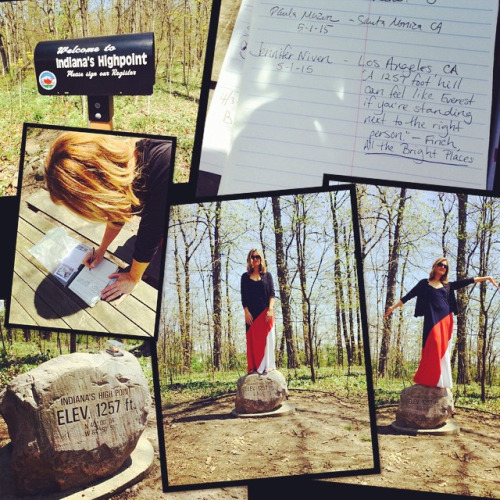 Welcome to
Indiana's Highpoint
Please sign our Register
Paula Mazur - Santa Monica CA
5-1-15
Jennifer Niven - Los Angeles, CA
5-1-15
"A 1257 foot hill
can feel like Everest
if you're standing
next to the right
person" - Finch,
All the Bright Places
INDIANA'S HIGH POINT
ELEV. 1257 ft.